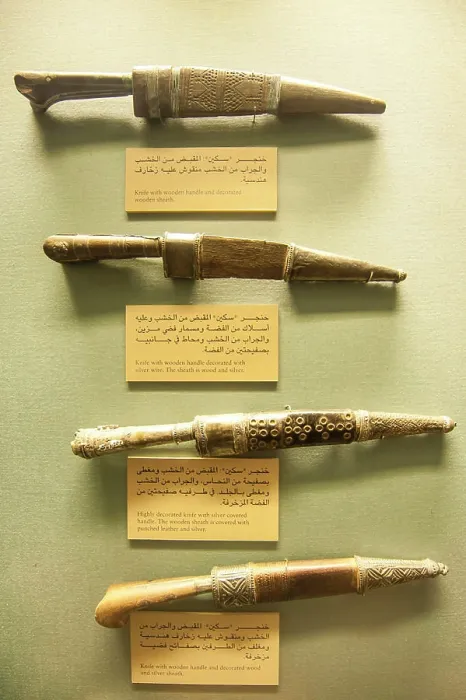 خنجر "سكين" المقبض من الخشب
والجراب من الخشب منقوش عليه زخارف
هندسية.
Knife with wooden handle and decorated
wooden sheath.
خنجر "سكين" المقبض من الخشب وعليه
أسلاك من الفضة ومسمار فضي مزين،
والجراب من الخشب ومحاط في جانبيه
بصفيحتين من الفضة.
Knife with wooden handle decorated with
silver wire. The sheath is wood and silver.
خنجر "سكين" المقبض من الخشب ومغطى
بصفيحة من النحاس، والجراب من الخشب
ومغطى بالجلد في طرفيه صفيحتين من
الفضة المزخرفة.
Highly decorated knife with silver covered
handle. The wooden sheath is covered with
punched leather and silver.
خنجر "سكين" المقبض والجراب من
الخشب ومنقوش عليه زخارف هندسية
ومغلف من الطرفين بصفائح فضية
مزخرفة.
Knife with wooden handle and decorated wood
and silver sheath.